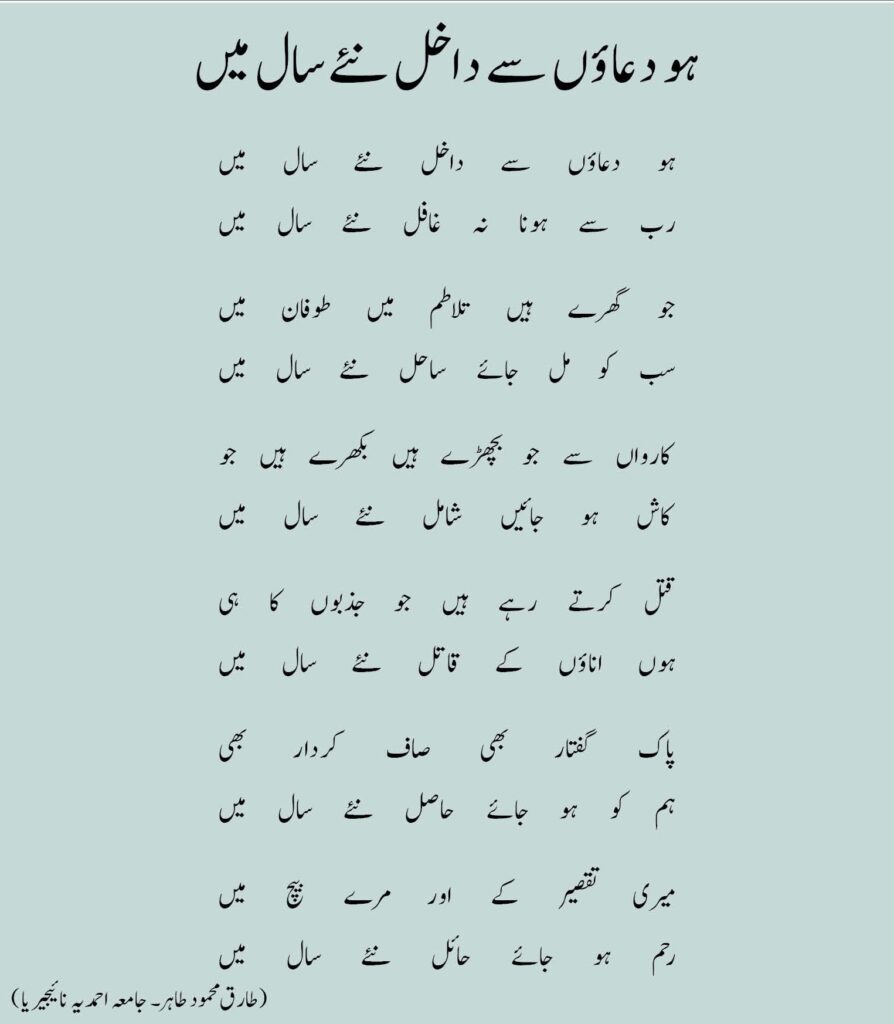 ہو دعاؤں سے داخل نئے سال میں
ہو دعاؤں سے داخل نئے سال میں
رب سے ہونا نہ غافل نئے سال میں
جو گھرے ہیں تلاطم میں طوفان میں
سب کو مل جائے ساحل نئے سال میں
کارواں سے جو بچھڑے ہیں بکھرے ہیں جو
کاش ہو جائیں شامل نئے سال میں
قتل کرتے رہے ہیں جو جذبوں کا ہی
ہوں اناؤں کے قاتل نئے سال میں
پاک گفتار بھی صاف کردار بھی
ہم کو ہو جائے حاصل نئے سال میں
میری تقصیر کے اور مرے بیچ میں
رحم ہو جائے حائل نئے سال میں
(طارق محمود طاہر۔ جامعہ احمدیہ نائیجیریا)